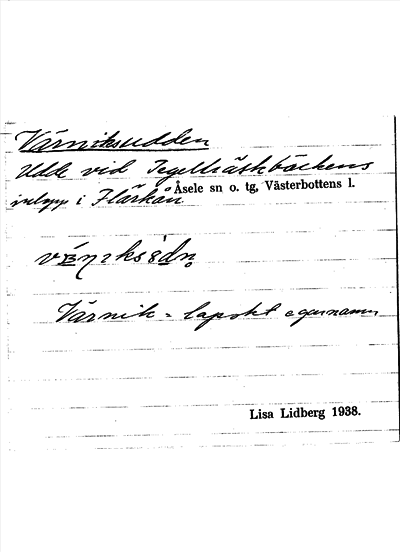 Värniksudden
Udde vid Tegelträskbäckens
inlopp i Flärkån.
Åsele sn o. tg, Västerbottens l.
Värnik = lapskt egennamn
Lisa Lidberg 1938.